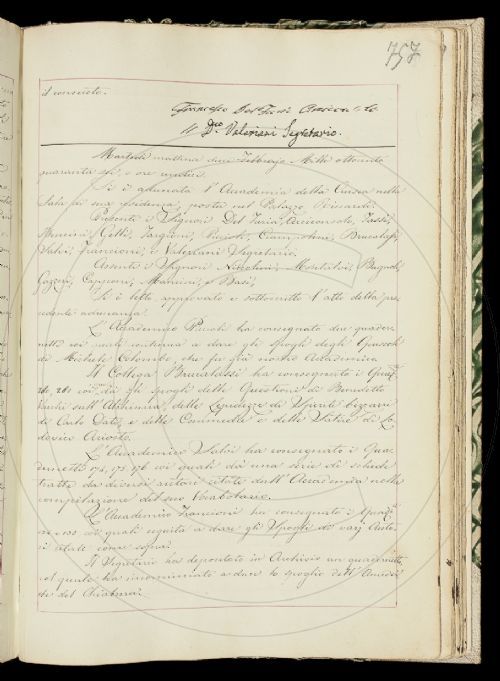 757
il consueto.
Francesco Del Furia Arciconsolo
Dco. Valeriani Segretario.
Martedì mattina dieci Febbraio Mille ottocento
quaranta sei, a ore undici.
Si è adunata l'Accademia della Crusca nella
Sala di sua residenza, posta nel Palazzo Riccardi.
Presenti i Signori Del Furia Arciconsolo, Tassi,
Becchi, Targioni, Puccioli, Ciampolini, Brucalassi,
Salvi, Francioni, e Valeriani Segretario.
Assenti i Signori Niccolini, Montalvi, Bagnoli,
Gazzeri, Capponi, Mannini, e Basi,
Si è letto, approvato e sottoscritto l'atto della pre-
cedente adunanza.
L'Accademico ha consegnato due quader-
netti coi quali continua a dare gli spogli degli Opuscoli
di Michele Colombo, che fu già nostro Accademico
Il Collega Brucalassi ha consegnato i Quad.
260, 261 coi quali dà gli spogli delle Questioni di Benedetto
Varchi sull'Alchimia, delle Lepidezze di Spiriti bizzarri
di Carlo Dati, e delle Commedie e delle Satire di Lo-
dovico Ariosto.
L'Accademico Salvi ha consegnato i Qua-
dernetti 174, 175 176 coi quali dà una serie di schede
tratte da diversi autori citate dall'Accademia nella
compilazione del suo Vocabolario.
L'Accademico Francioni ha consegnato i Quad.
coi quali seguita a dare gli Spogli di varj Auto-
ri citate come sopra.
Il Segretario ha depositato in Archivio un quadernetto,
col quale ha incominciato a dare lo spoglio dell'
del Chiabrera.